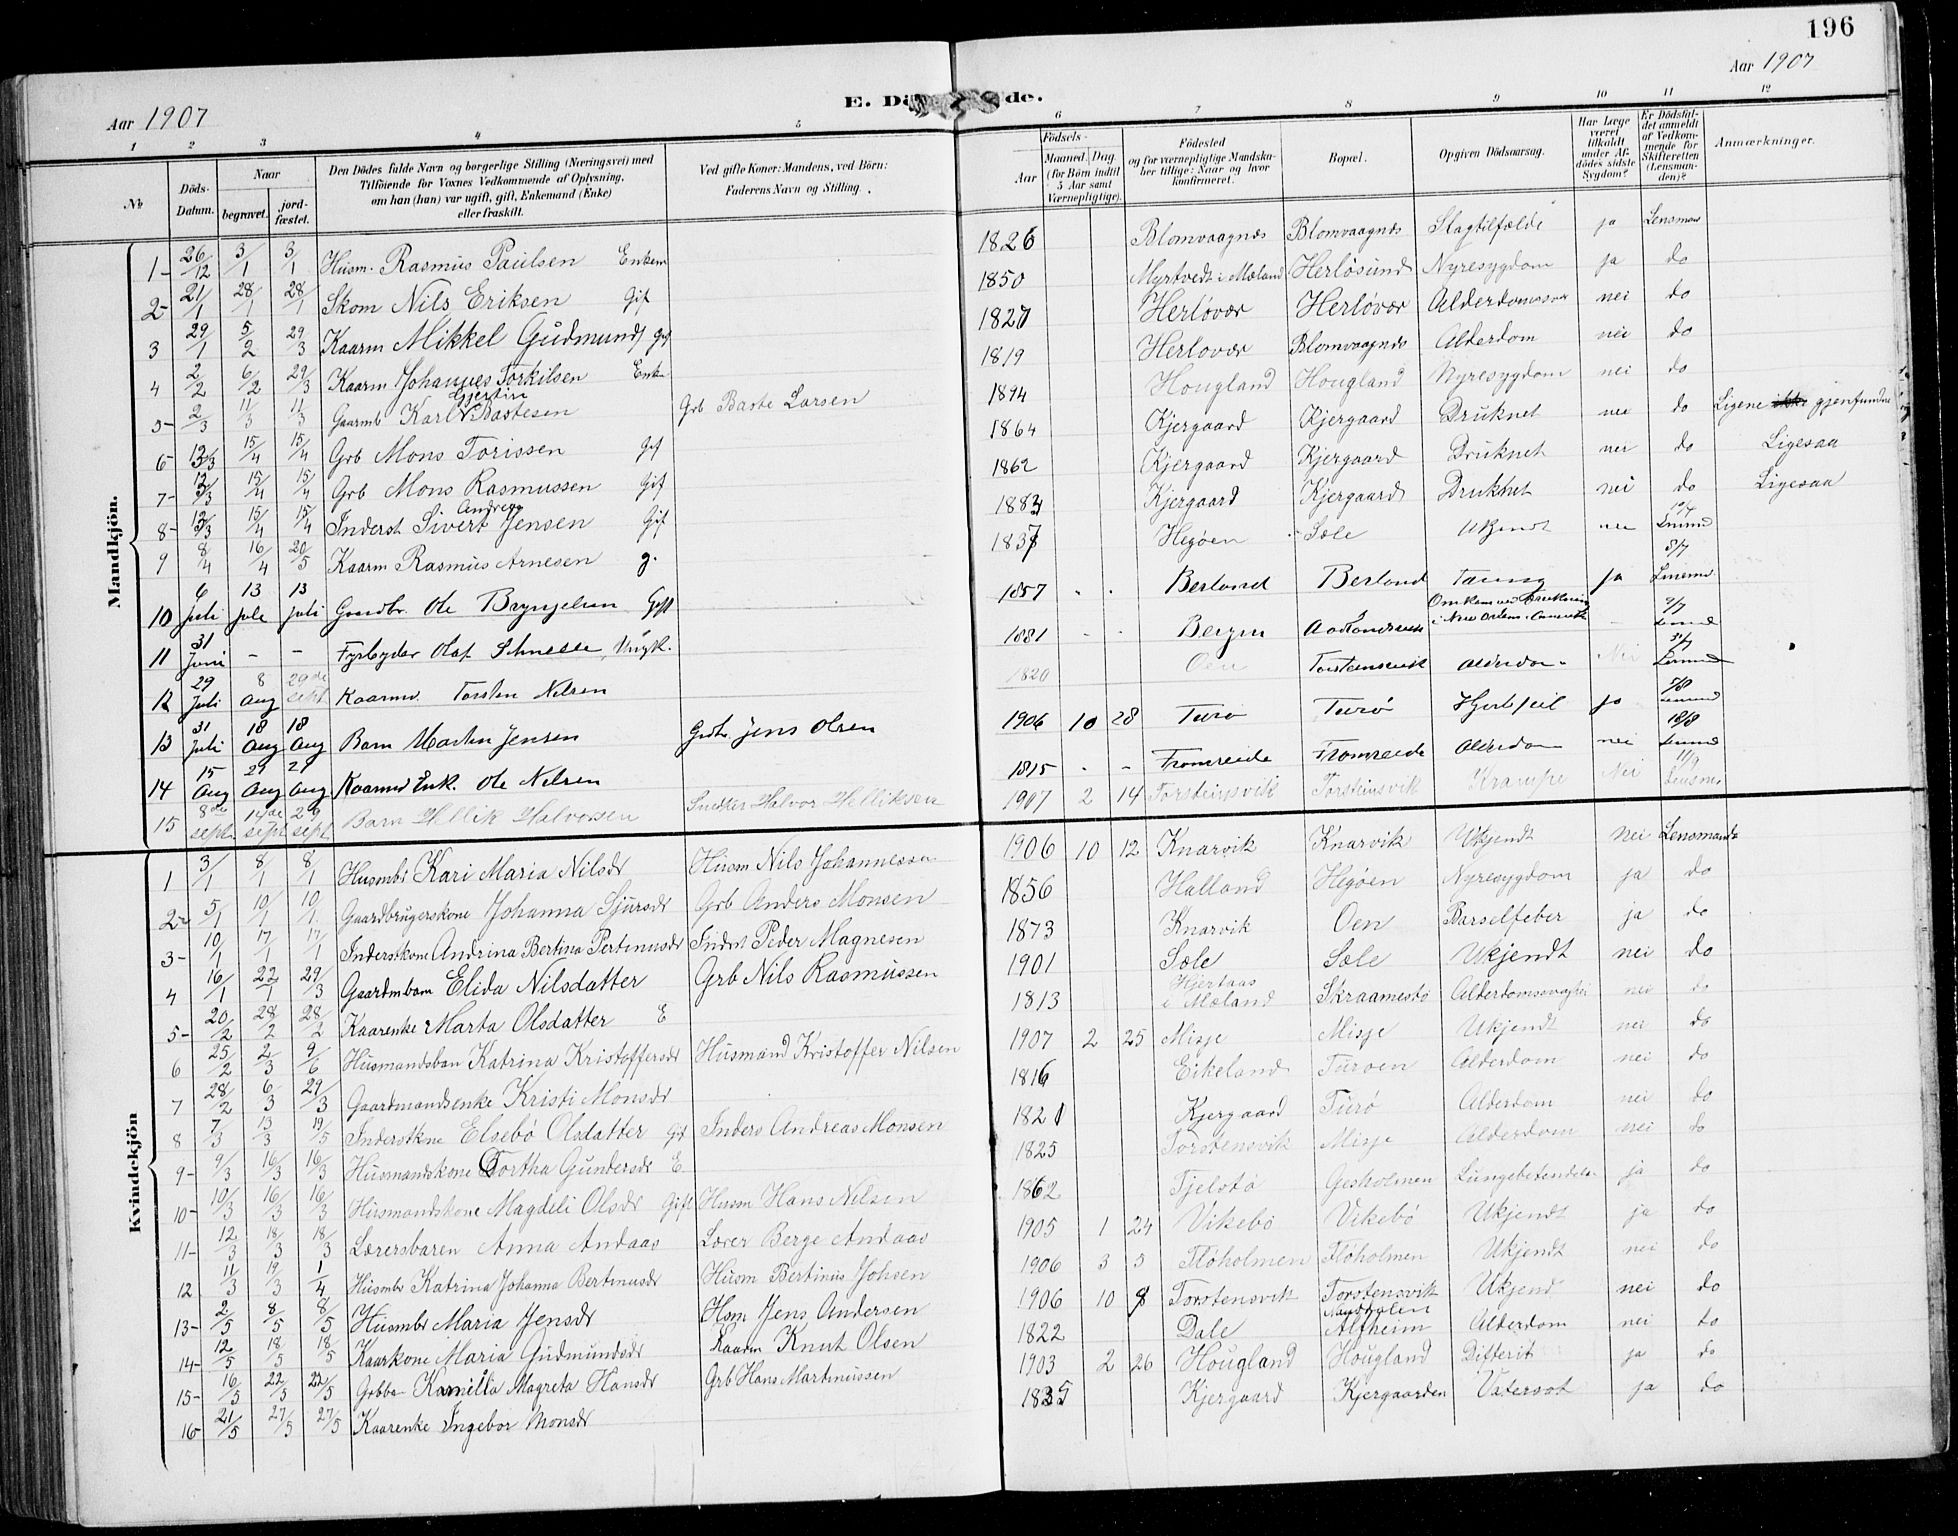 196
Aar 1907
E. Dö de.
Aar 1907
1 2 3 4 5 6 7 8 9 10 11 12
No
Döds-Datum.
Naar
begravet.
jord-fæstet.
Den Dödes fulde Navn og borgerlige Stilling (Næringsvei) med Tilföiende for Voxnes Vedkommende af Oplysning, om han (hun) var ugift, gift, Enkemand (Enke) eller fraskilt.
Ved gifte Koner: Mandens, ved Börn: Faderens Navn og Stilling.
Födsels-
Aar
Maaned. Dag.
(for Börn indtil 5 Aar samt Værnepligtige).
Födested og for værnepligtige Mandskaber tillige: Naar og hvor konfirmeret.
Bopæl.
Opgiven Dödsaarsag.
Har Læge været tilkaldt under Afdödes sidste Sygdom?
Er Dödsfaldet anmeldt af Vedkommende for Skifteretten (Lensmanden)?
Anmærkninger.
Mandkjön.
1 26/12 3/1 3/1 Husm. Rasmus Paulsen Enkem 1826 Blomvaagnes Blomvaagnes Slagtilfælde ja Lensmand
2 21/1 28/1 28/1 Skom Nils Eriksen Gif 1850 Myrtvedt i Mæland Herløsund Nyresygdom ja do
3 29/1 5/2 29/3 Kaarm Mikkel Gudmunds Gif 1827 Herløvær Herløvær nei do
4 2/2 6/2 29/3 Kaarm Johannes Torkilsen Enke 1819 Herlovær Blomvaagnes Alderdom nei do
5 2/3 11/3 11/3 Gaarmb Karl Gjertin Bastesen Grb Baste Larsen 1894 Hougland Hougland Nyresygdom nei do
6 12/3 15/4 15/4 Grb Mons Torissen Gif 1864 Kjergaard Kjergaard Druknet nei do Ligene gjenfundne
7 12/3 15/4 15/4 Grb Mons Rasmussen Gif 1862 Kjergaard Kjergaard Druknet nei do Ligesaa
8 12/3 15/4 15/4 Inderst Sivert Andreas Jensen Gif Kjergaard Kjergaard Druknet nei do Ligesaa
9 8/4 16/4 20/5 Kaarm Rasmus Arnesen g. 1837 Hegøen Sæle Ukjendt nei
10 6 Juli 13 Jule 13 Juli Gaardbr. Ole Brynjelsen Gift 1857 Berland Berland Tæring ja
11 31 Juni - - Fyrbyder Olaf Ungk. 1881 Bergen Omkom ved Drukning
12 29 Juli 8 Aug 29de Sept Kaarmd. Torsten Nilsen 1820 Oen Torsteinsvik Alderdom Nei
13 31 Juli 18 Aug 18 Aug Barn Martin Jensen Grdbr. Jens Olsen 1906 10 28 Turø Turø Hjertefeil ja
14 15 Aug 29 Aug 29 Aug Kaarmd Enk. Ole Nilsen 1815 - - Fromreide Fromreide Alderdom nei
15 8de Sept 14de Sept 29 Sept Barn Hellik Halvorsen Snedker Halvor Helliksen 1907 2 14 Torsteinsvik Torsteinsvik Krampe Nei
Kvindekjön
1 3/1 8/1 8/1 Husmbr Kari Maria Nilsdr Husm Nils Johannessen 1906 10 12 Knarvik Knarvik Ukjendt nei Lensmand
2 5/1 10/1 10/1 Gaardbrugerskone Johanna Sjursdr Grb Anders Monsen 1856 Halland Hegøen Nyresygdom ja do
3 10/1 17/1 17/1 Inderstkone Andrina Bertina Pertinusdr Indst Peder Magnesen 1873 Knarvik Oen Barselfeber ja do
4 16/1 22/1 29/3 Gaardmbarn Elida Nilsdatter Grb Nils Rasmussen 1901 Sæle Sæle Ukjendt nei do
5 20/2 28/2 28/2 Kaarenke Marta Olsdatter E 1813 Hjertaas i Mæland Skraamestø Alderdomssvaghed nei do
6 25/2 2/3 9/6 Husmandsban Katrina Kristoffersdr Husmand Kristoffer Nilsen 1907 2 25 Misje Misje Ukjendt nei do
7 28/2 6/3 29/3 Gaardmandsenke Kristi Monsdr 1816 Eikeland Turøen Alderdom nei do
8 7/3 13/3 19/5 Inderstkne Elsebø Olsdatter Gif Inders Andreas Monsen 1821 Kjergaard Turø Alderdom nei do
9 9/3 16/3 16/3 Husmandskone Tortha Gundersdr E 1825 Torstensvik Misje Alderdom nei do
10 10/3 16/3 16/3 Husmandskone Magdeli Olsdr Gift Husm Hans Nilsen 1862 Fjelstø Gesholmen Lungebetendelse ja do
11 12/3 18/3 18/3 Lærersbaren Anna Andaas Lærer Berge Andaas 1905 1 24 Vikebø Vikebø Ukjendt ja do
12 11/3 19/3 1/4 Husmbr Katrina Johanna Bertinusdr Husm Bertinus Johsen 1906 3 5 Fløholmen Fløholmen Ukjendt nei do
13 2/5 8/5 8/5 Husmbr Maria Jensdr Hsm Jens Andersen 1906 10 8 Torstensvik Torstensvik Ukjend nei do
14 12/5 18/5 18/5 Kaarkone Maria Gudmundsdr Kaarm Knut Olsen 1822 Dale Alfheim Alderdom nei do
15 16/5 22/5 22/5 Grbba Kamilla Magreta Hansdr Grb Hans Martinussen 1903 2 26 Hougland Hougland Difterit ja do
16 21/5 27/5 27/5 Kaarenke Ingebor Monsdr 1835 Kjergaard Kjergaarden Vatersot ja do